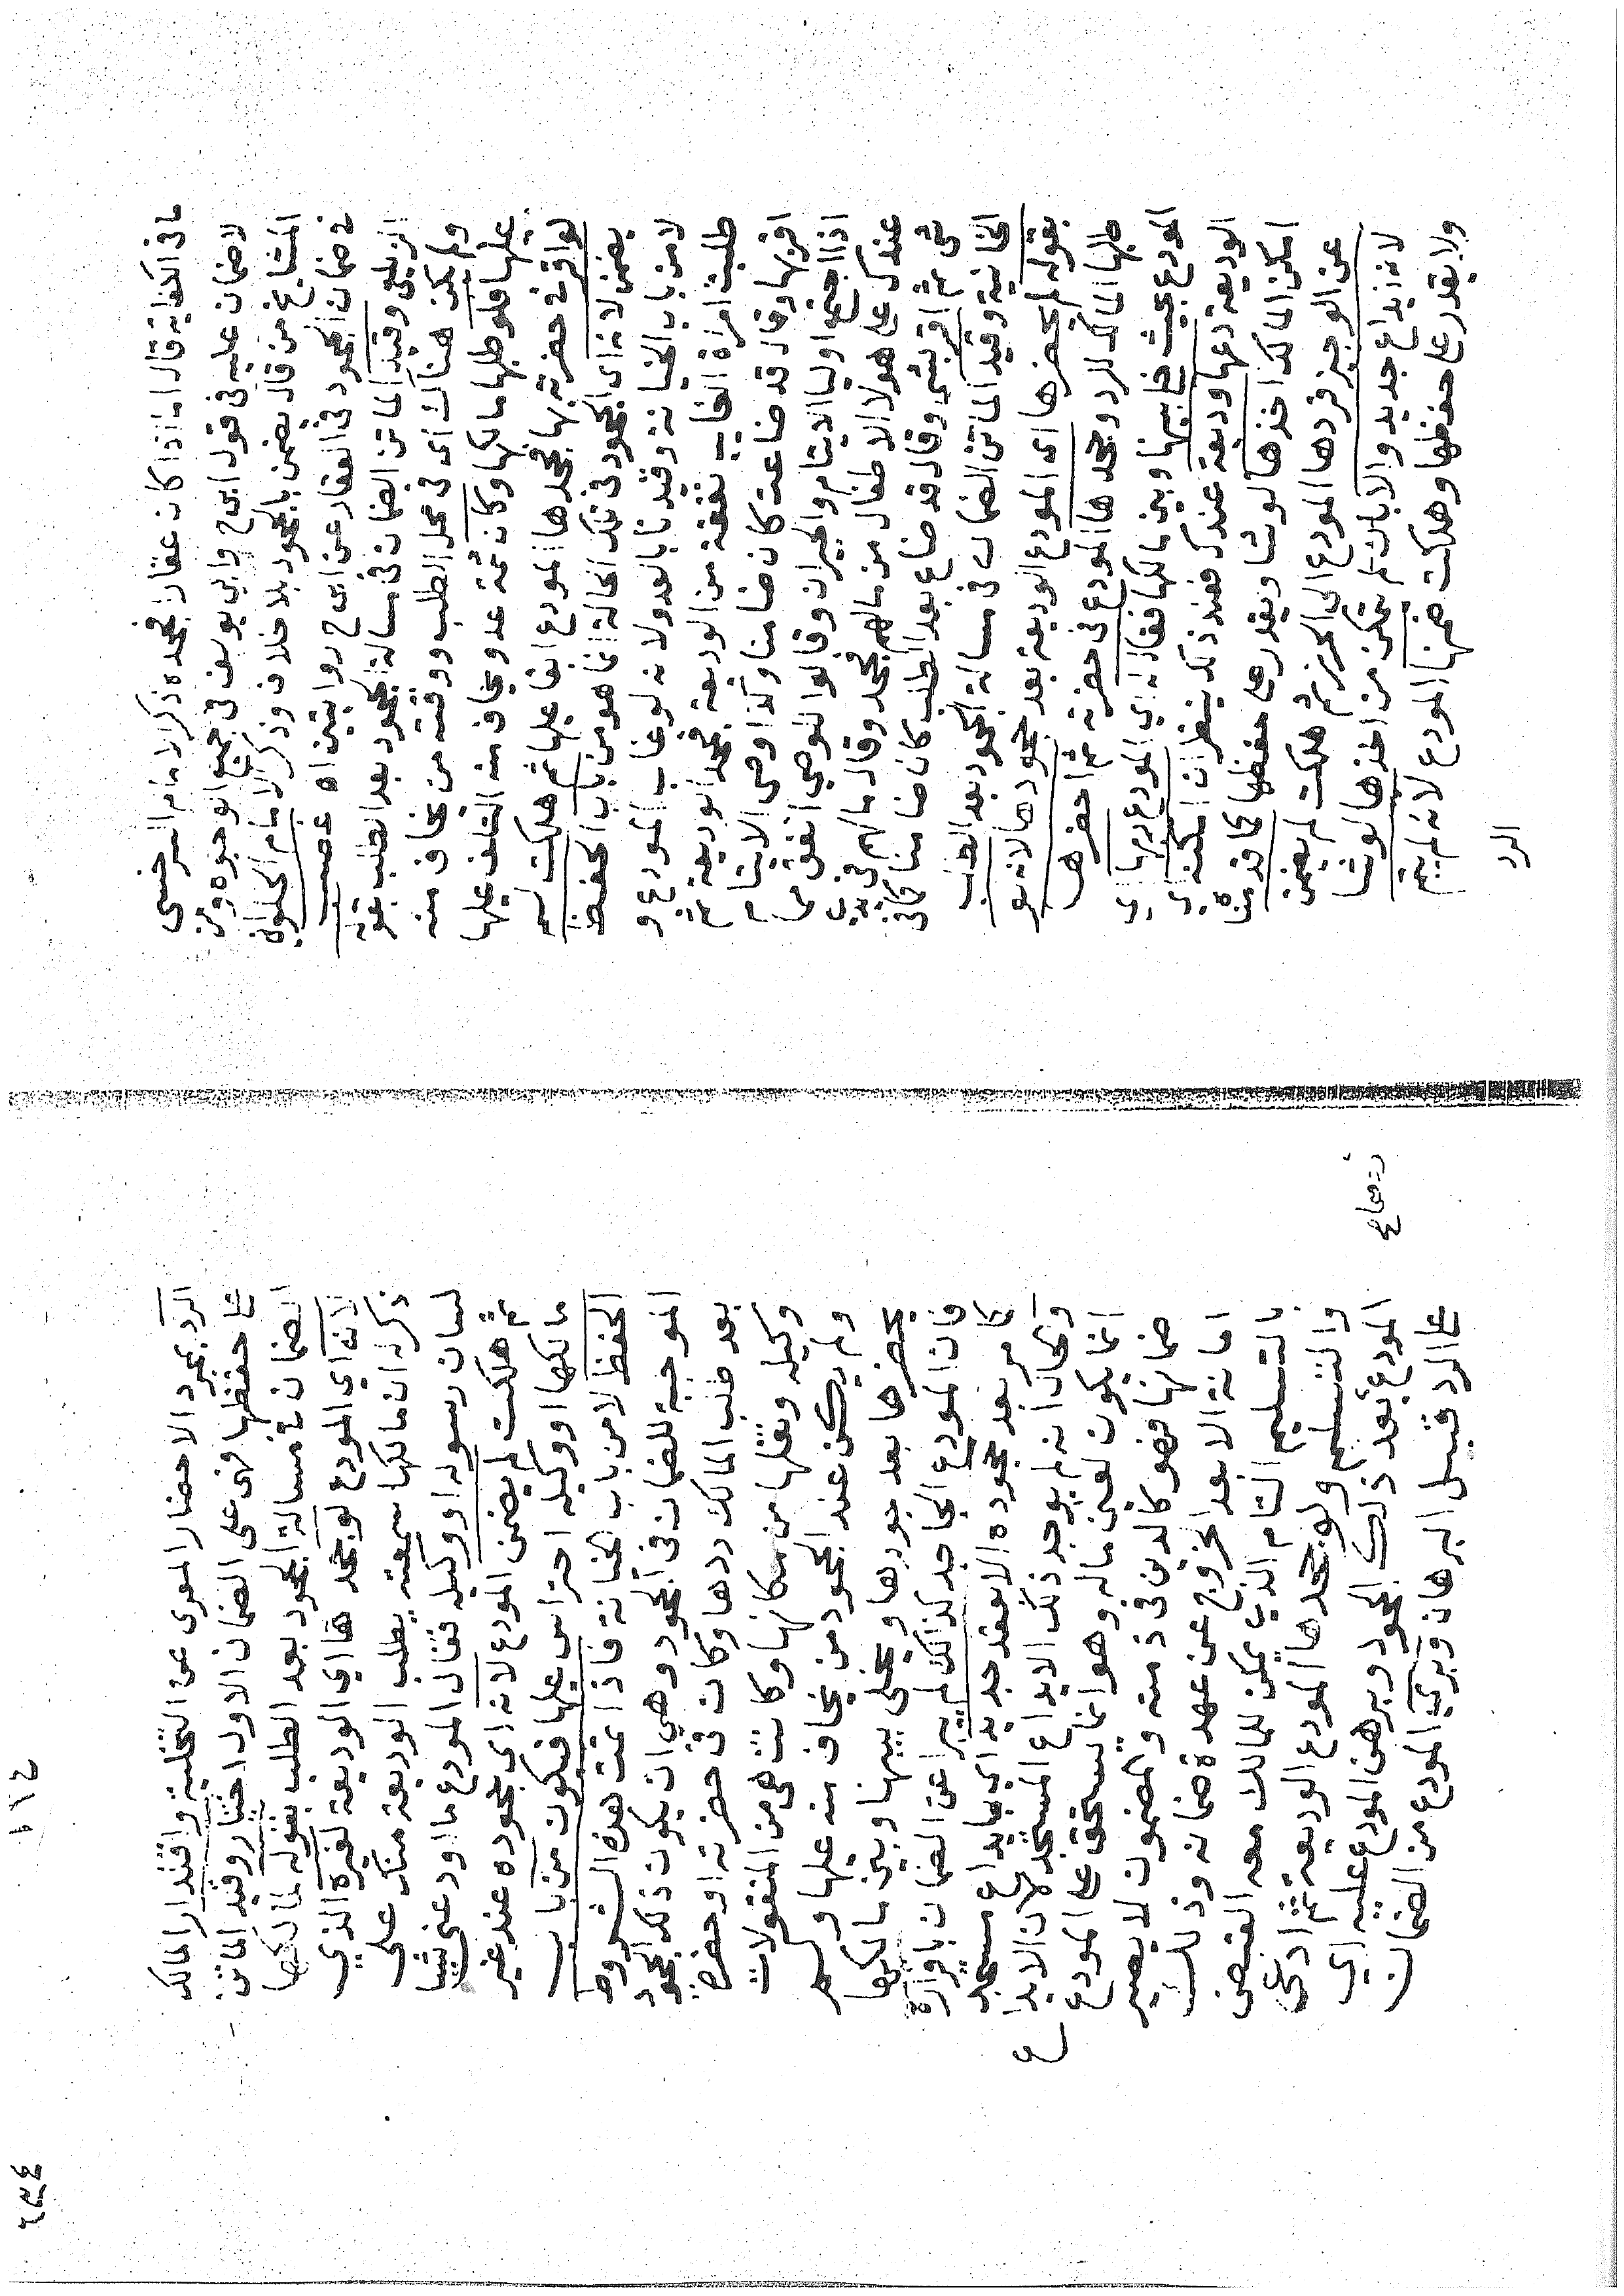 ما في الكفاية قال اما اذا كان عقارا فجحده ذكر الامام السرخسي
لا ضمان عليه في قول ابى ح وابى يوسف في جميع الوجوه ومن
المشايخ من قال يضمن بالجحود بلا خلاف وذكر الامام الحلواني
في ضمان الجحود في العقار عن ابى ح روايتين اه
الزيلعي وقيد الماتن الضمان في مسالة الجحود بعد الطلب بقوله
ولم يكن هناك اى في محل الطلب ووقته من يخاف منه
عليها فلو طلبها مالكها وكان ثمة عدو يخاف منه التلف عليها
لو اقر في حضرته بها فجحدها المودع ابقا عليها ثم هلكت لم
يضمن لانه اى الجحود في تلك الحالة انما هو من باب الحفظ
لا من باب الخيانة وقيدنا بالعدو لانه لو غاب المودع و
طلبت امراة الغايب نفقة من الوديعة فجحد الوديعة ثم
اقر بها وقال قد ضاعت كان ضامنا وكذا وصى الايتام
اذا اجتمع اوليا الايتام والجيران وقالوا للوصي انفق مما
عندك على هولا الاطفال من مالهم فجحد وقال مالهم في يدي
شى ثم اقر بشى وقال قد ضاع بعد الطلب كان ضامنا كما في
الخانية وقيد الماتن الضمان في مسالة الجحود بعد الطلب
بقوله لم يحضرها اى المودع الوديعة بعد جحودها لانه لو
طلبها المالك للرد وجحدها المودع في حضرته ثم احضرها
المودع بحيث خلى بينها وبين مالكها فقال له اي المودع ربها اى
الوديعة دعها وديعة عندك فعند ذلك ينظر ان امكنه اى
امكن المالك اخذها لو شا ويقدر على حفظها كما قدمناه
عن الوجيز فردها المودع الى الحرز ثم هلكت لم يضمن
لانه ايداع جديد والا بان لم يتمكن من اخذها لو شا
ولا يقدر على حفظها وهلكت ضمنها المودع لانه لم يتم
الرد
الرد بمجرد الاحضار المعرى عن التخلية واقتدار المالك
على حفظها فهى على الضمان الاول اختيار وقيد الماتن
الضمان في مسالة الجحود بعد الطلب بقوله لمالكها
لانه اي المودع لو جحدها اي الوديعة لغيره الذي
ذكر له ان مالكها سمعته يطلب الوديعة منك على
لسان رسوله او وكيله فقال المودع ما اودعني شيا
ثم هلكت لم يضمن المودع لانه اى جحوده عند غير
مالكها او وكيله احتراس عليها فيكون من باب
الحفظ لا من باب الخيانة فاذا تمت هذه الشروط
الموجبة للضمان في الجحود وهي ان يكون ذلك الجحود
بعد طلب المالك ردها وكانت في حضرته او حضرة
وكيله ونقلها من مكانها وكانت هى من المنقولات
ولم يكن عند الجحود من يخاف منه عليها ولم
يحضرها بعد جحودها ويخلى بينها وبين مالكها
فان المودع الجاحد كذلك لم يبرا عن الضمان باقراره
كما مر بعد جحوده الا بعقد جديد اي بايداع مستجد
والحال انه لم يوجد ذلك الايداع المستجد لان الايداع
انما يكون لعين ماله وهو انما يستحق على المودع
ضمانها فهو كالدين في ذمته والمضمون لا يصير
امانة الا بعد الخروج عن عهدة ضمانه وذلك
بالتسليم التام الذي يمكن للمالك معه القبض
والتسلم ولو جحدها المودع الوديعة ثم ادعى
المودع بعد ذلك الجحود وبرهن المودع عليه اي
على الرد قبل البرهان وبرئ المودع من الضمان